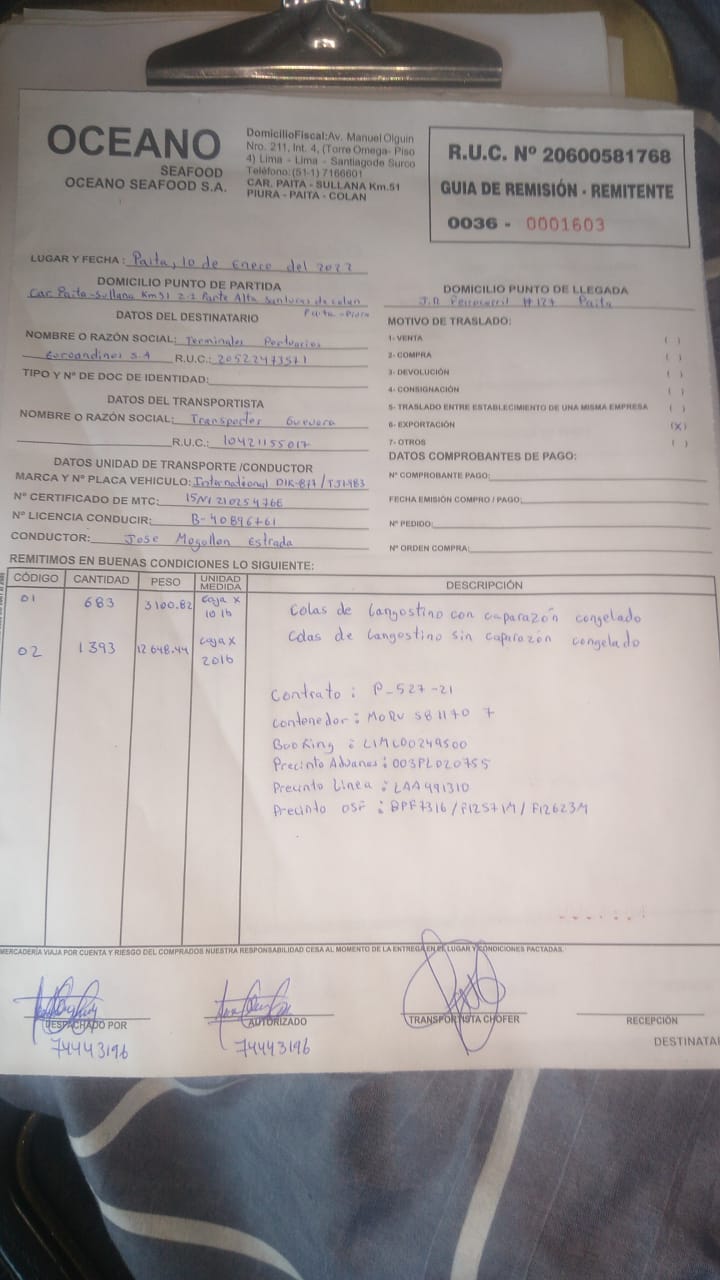 OCEANO
SEAFOOD
OCEANO SEAFOOD S.A.
DomicilioFiscal:Av. Manuel Olguin
Nro. 211, Int. 4, (Torre Omega- Piso
4) Lima - Lima - Santiagode Surco
Teléfono:(51-1) 7166601
CAR. PAITA - SULLANA Km.51
PIURA - PAITA - COLAN
R.U.C. Nº 20600581768
GUIA DE REMISIÓN - REMITENTE
0036 - 0001603
LUGAR Y FECHA : Paita, 10 de Enero del 2022
DOMICILIO PUNTO DE PARTIDA
Car. Paita-Sullana Km51 Z.I Parte Alta de colan
Paita - Piura
DOMICILIO PUNTO DE LLEGADA
J.R Ferrocarril # 127 Paita
DATOS DEL DESTINATARIO
NOMBRE O RAZÓN SOCIAL: Terminales Portuarios
Euroandinos S.A R.U.C.: 20522473571
TIPO Y Nº DE DOC DE IDENTIDAD:
DATOS DEL TRANSPORTISTA
NOMBRE O RAZÓN SOCIAL: Transportes Guevara
R.U.C.: 10421155017
DATOS UNIDAD DE TRANSPORTE /CONDUCTOR
MARCA Y Nº PLACA VEHICULO: International
Nº CERTIFICADO DE MTC: 15M210254766
Nº LICENCIA CONDUCIR: B-40896761
CONDUCTOR: Jose Mogollon Estrada
MOTIVO DE TRASLADO:
1- VENTA ( )
2- COMPRA ( )
3- DEVOLUCIÓN ( )
4- CONSIGNACIÓN ( )
5- TRASLADO ENTRE ESTABLECIMIENTO DE UNA MISMA EMPRESA ( )
6- EXPORTACIÓN (X)
7- OTROS ( )
DATOS COMPROBANTES DE PAGO:
Nº COMPROBANTE PAGO:
FECHA EMISIÓN COMPRO / PAGO:
Nº PEDIDO:
Nº ORDEN COMPRA:
REMITIMOS EN BUENAS CONDICIONES LO SIGUIENTE:
CÓDIGO CANTIDAD PESO UNIDAD MEDIDA DESCRIPCIÓN
01 683 3100.82 caja x 10 lb Colas de Langostino con caparazón congelado
02 1393 12648.44 caja x 20lb Colas de Langostino sin caparazón congelado
Contrato : P-527-21
Contenedor : MORU 581170 7
Booking : LIML00249500
Precinto Aduanas : 003PL020755
Precinto Linea : LAA991310
Precinto OSF : BPF7316 / F12571M / F12623M
MERCADERÍA VIAJA POR CUENTA Y RIESGO DEL COMPRADOS NUESTRA RESPONSABILIDAD CESA AL MOMENTO DE LA ENTREGA EN EL LUGAR Y CONDICIONES PACTADAS.
DESPACHADO POR
74443196
AUTORIZADO
74443196
TRANSPORTISTA CHOFER
RECEPCIÓN
DESTINATA